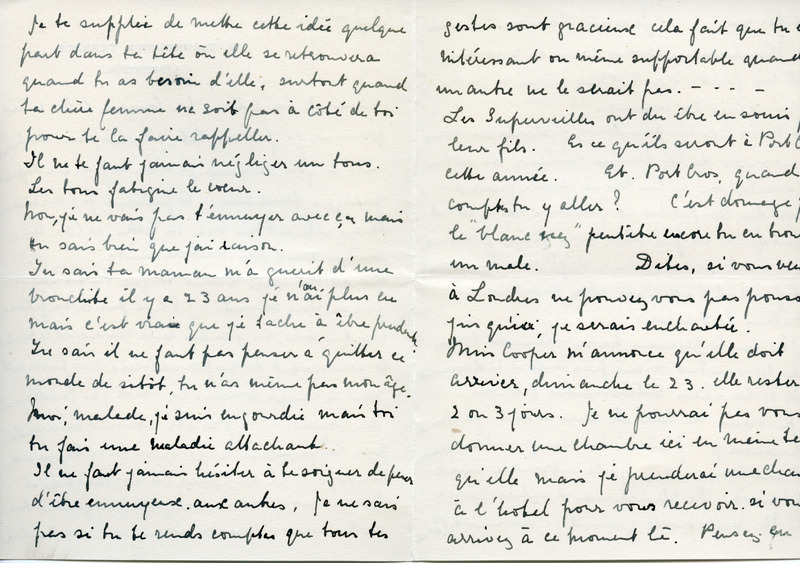 Je te supplie de mettre cette idée quelque
part dans ta tête où elle se retrouvera
quand tu as besoin d'elle, surtout quand
ta chère femme ne soit pas à côté de toi
pour te la faire rappeller.
Il ne te faut jamais négliger un tous.
Les tous fatigue le coeur.
Non, je ne vais pas t'ennuyer avec ça mais
tu sais bien que j'ai raison.
Tu sais ta maman m'a guerit d'une
bronchite il y a 23 ans je n'ai plus eu
mais c'est vraie que je tache à être prudente
Tu sais il ne faut pas penser à quitter ce
monde de sitôt, tu n'as même pas mon âge.
Moi, malade, je suis engourdie mais toi
tu fais une maladie attachant.
Il ne faut jamais hésiter à te soigner de peur
d'être ennuyeuse aux autres. Je ne sais
pas si tu te rends comptes que tous tes
gestes sont gracieuse cela fait que tu
intéressant ou même supportable quand
un autre ne le serait pas. - - - -
Les Supervielles ont du être en soucis
leur fils. Es ce qu'ils seront à Port
cette année. Et. Port Cros, quand
comptes tu y aller? C'est domage
le "blanc nez" peutêtre encore tu en
un male. Dites, si vous
à Londres ne pouvez vous pas
jusqu'ici, je serais enchantée.
Miss Cooper m'annonce qu'elle doit
arriver, dimanche le 23. elle
2 ou 3 jours. Je ne pourrai pas vous
donner une chambre ici en même
qu'elle mais je prenderai une
à l'hôtel pour vous recevoir. si
arrivez à ce moment là. Pensez